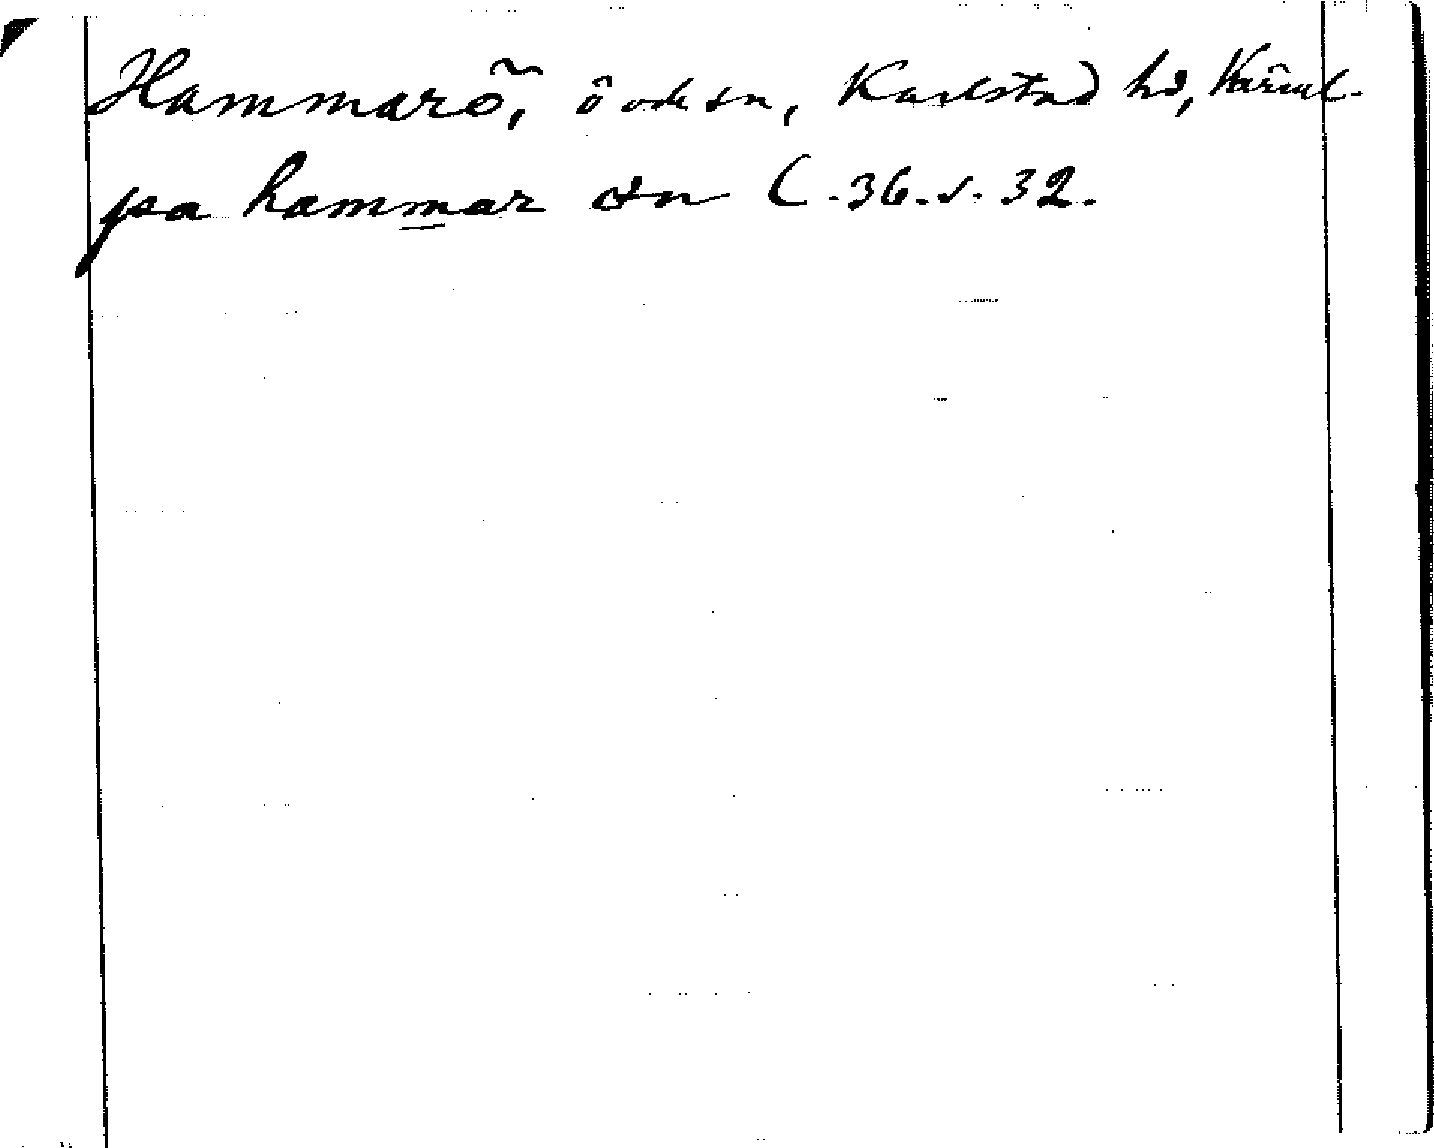 Hammarö, ö och sn, Karlstad hd, Värml.
pa hammar ön C. 36. s. 32.